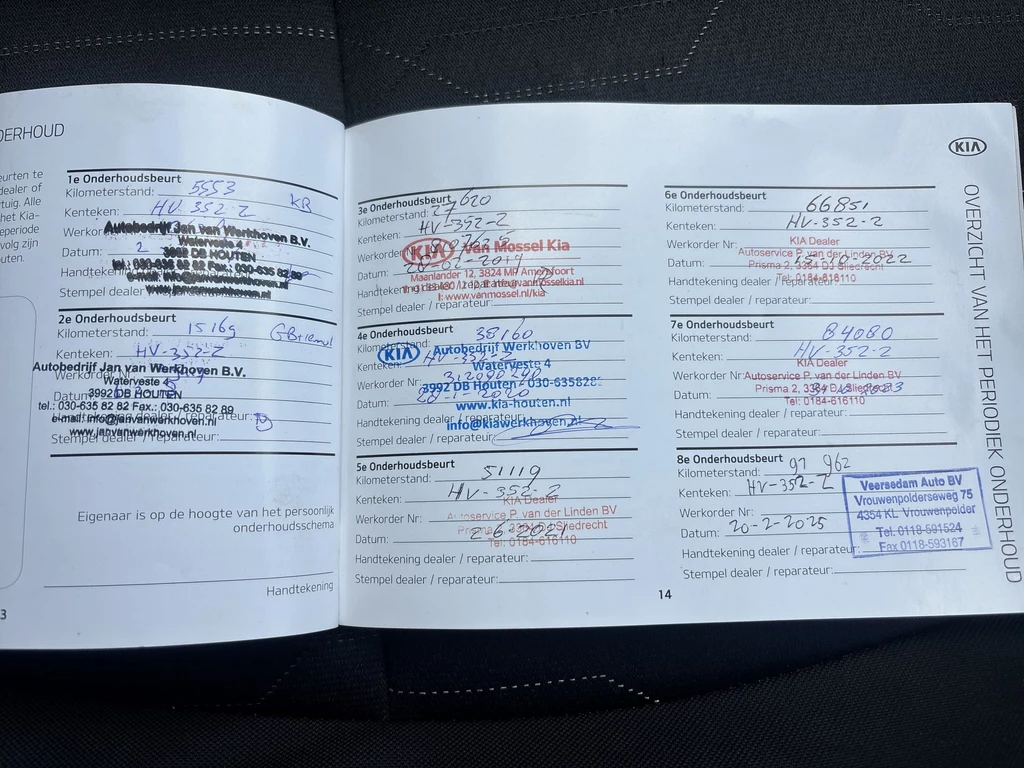 DERHOUD
eurten te
dealer of
tuig. Alle
het Kia-
eperiode
volg zijn
uten.
1e Onderhoudsbeurt
Kilometerstand: 5553
KB
Kenteken: HV-352-Z
Autobedrijf Jan van Werkhoven B.V.
Waterveste 4
Datum: 2
3992 DB HOUTEN
Stempel dealer
2e Onderhoudsbeurt
Kilometerstand: 15169
Kenteken: HV-352-Z
Autobedrijf Jan van Werkhoven B.V.
Werkorder Nr.
Waterveste 4
Datum:
3992 DB HOUTEN
tel.: 030-635 82 82 Fax.: 030-635 82 89
e-mail: info@janvanwerkhoven.nl
www.janvanwerkhoven.nl
Stempel dealer / reparateur:
Eigenaar is op de hoogte van het persoonlijk
onderhoudsschema
Handtekening
3
3e Onderhoudsbeurt
Kilometerstand: 27620
Kenteken: HV-352-Z
Werkorder Nr.
KIA Van Mossel Kia
Datum:
Maanlander 12, 3824 MP Amersfoort
Handtekening
I: www.vanmossel.nl/kia
Stempel dealer / reparateur:
4e Onderhoudsbeurt
Kilometerstand: 38160
KIA Autobedrijf Werkhoven BV
Kenteken: HV-352-Z
Waterveste 4
Werkorder Nr:
3992 DB Houten / 030-635828
Datum: 2020
www.kia-houten.nl
Handtekening dealer / reparateur:
info@kiawerkhoven.nl
Stempel dealer / reparateur:
5e Onderhoudsbeurt
Kilometerstand: 51119
Kenteken: HV-352-Z
KIA Dealer
Werkorder Nr: Autoservice P. van der Linden BV
Prisma 2, 3364 DJ Sliedrecht
Datum: 2-6-2021
Tel: 0184-616110
Handtekening dealer / reparateur:
Stempel dealer / reparateur:
14
6e Onderhoudsbeurt
Kilometerstand: 66851
Kenteken: HV-352-Z
KIA Dealer
Werkorder Nr: Autoservice P. van der Linden BV
Datum: 10-2022
Prisma 2, 3364 DJ Sliedrecht
Tel: 0184-616110
Handtekening dealer / reparateur:
Stempel dealer / reparateur:
7e Onderhoudsbeurt
Kilometerstand: 84080
Kenteken: HV-352-Z
KIA Dealer
Werkorder Nr: Autoservice P. van der Linden BV
Prisma 2, 3364 DJ Sliedrecht
Datum: 2023
Tel: 0184-616110
Handtekening dealer / reparateur:
Stempel dealer / reparateur:
8e Onderhoudsbeurt
Kilometerstand: 97 962
Kenteken: HV-352-Z
Werkorder Nr:
Datum: 20-2-2025
Handtekening dealer / reparateur:
Stempel dealer / reparateur:
Veersedam Auto BV
Vrouwenpolderseweg 75
4354 KL Vrouwenpolder
Tel. 0118-591524
Fax 0118-593167
KIA
OVERZICHT VAN HET PERIODIEK ONDERHOUD